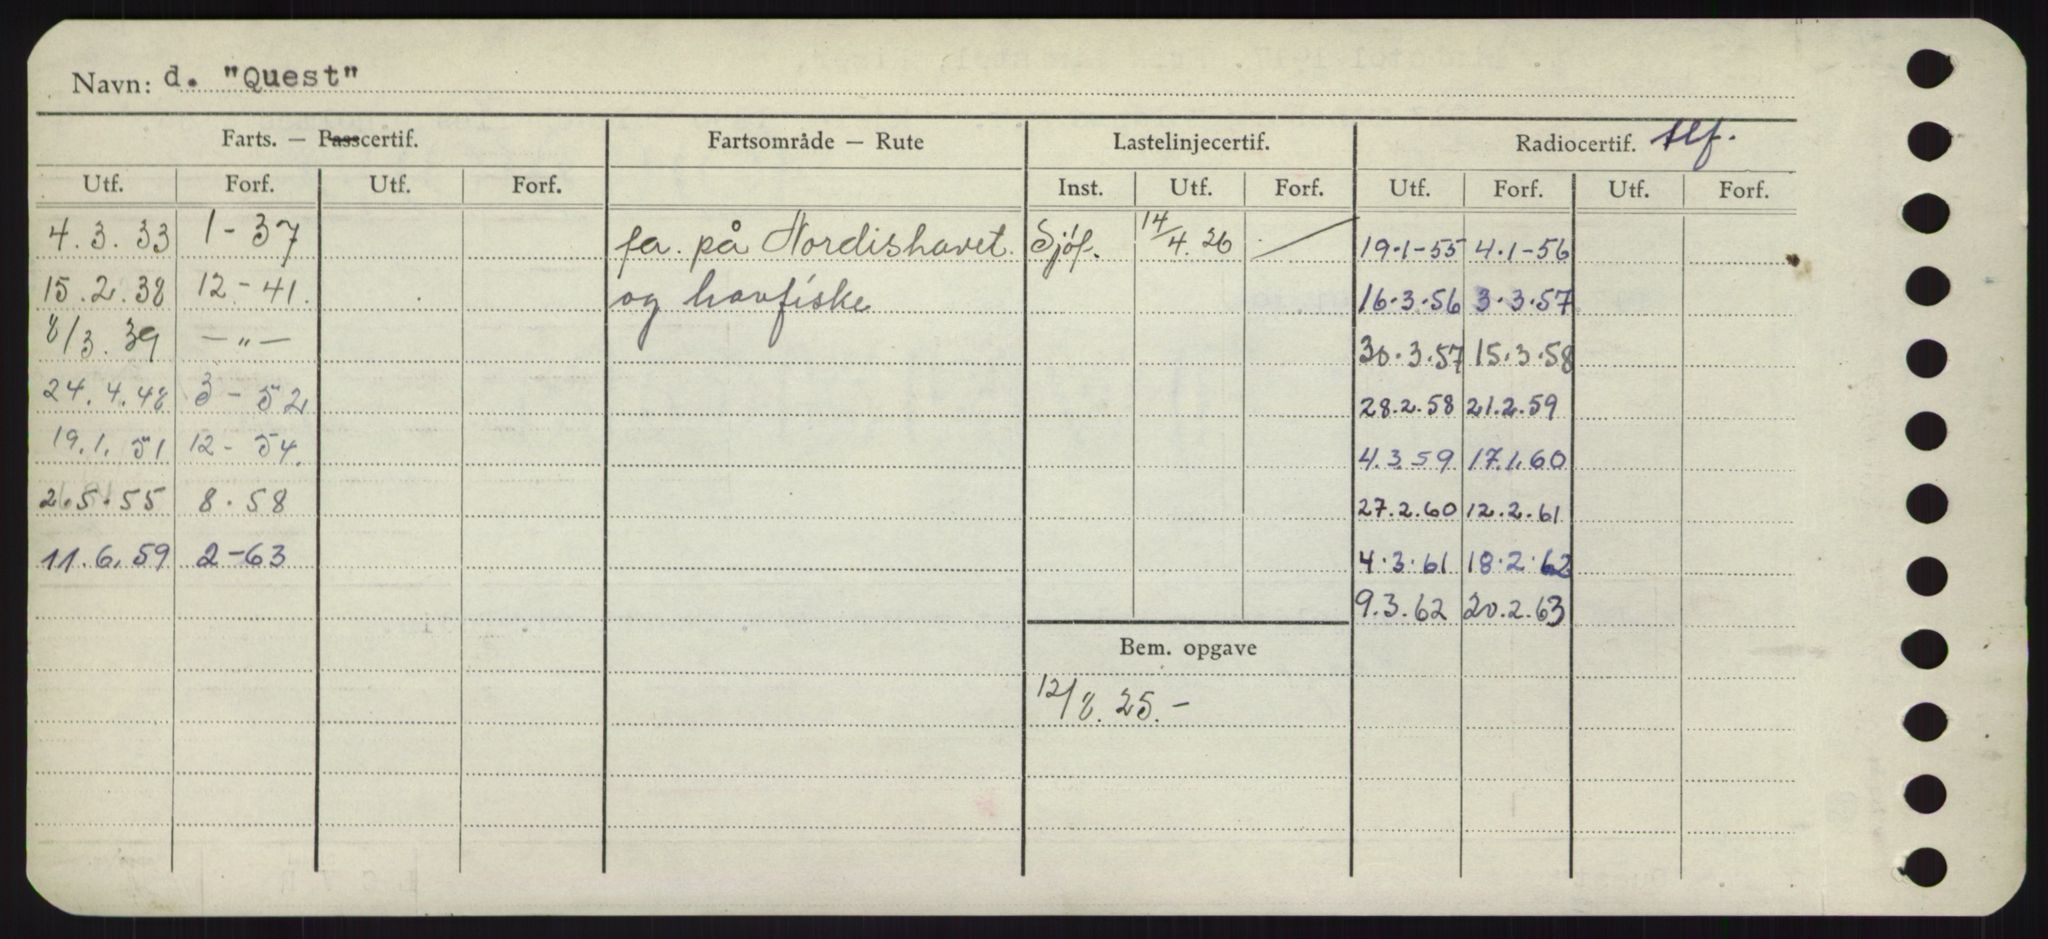 Navn: d. "Quest"
Farts. — Passcertif. Fartsområde — Rute Lastelinjecertif. Radiocertif. tlf.
Utf. Forf. Utf. Forf. Inst. Utf. Forf. Utf. Forf. Utf. Forf.
4.3.33 1-37 fa. på Nordishavet. Sjöf. 14/4.26 19.1-55 4.1-56
15.2.38 12-41. og havfiske 16.3.56 3.3.57
8/3.39 —„— 30.3.57 15.3.58
24.4.48 3-52 28.2.58 21.2.59
19.1.51 12-54. 4.3.59 17.1.60
2.5.55 8.58 27.2.60 12.2.61
11.6.59 2-63 4.3.61 18.2.62
9.3.62 20.2.63
Bem. opgave
12/8.25.-